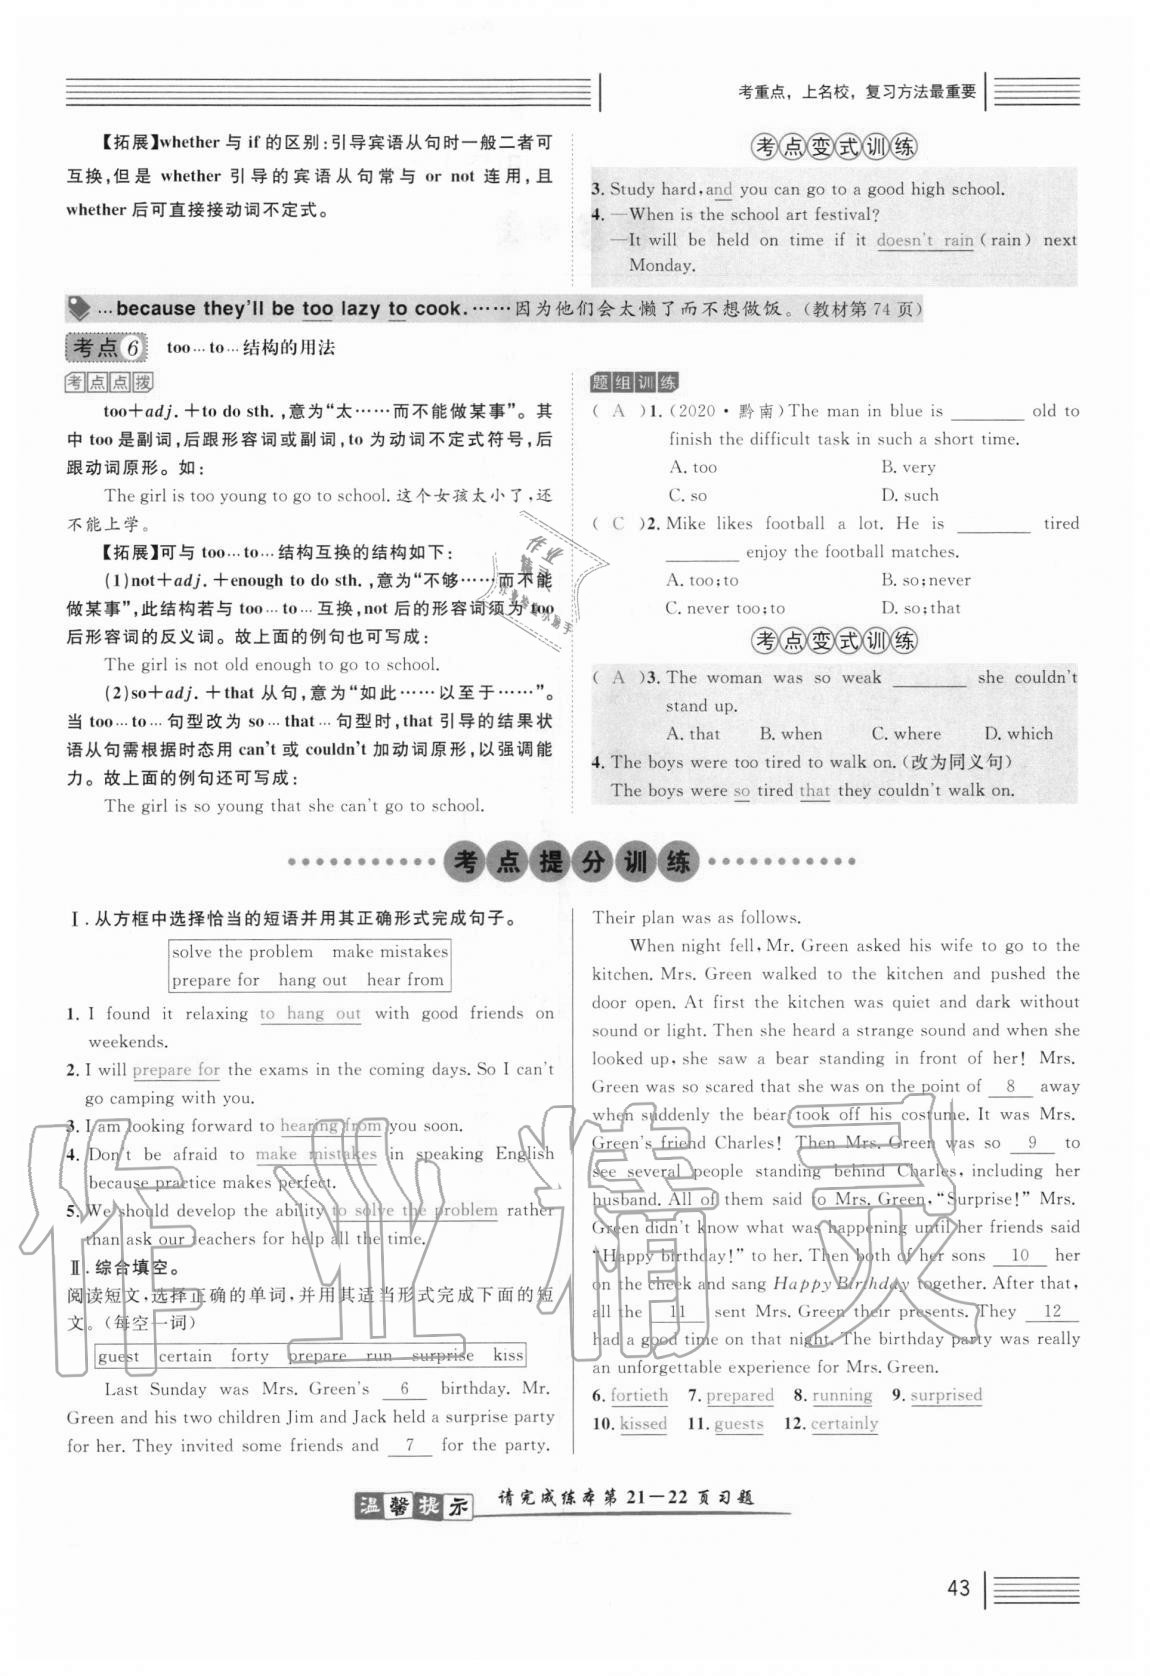 考重点，上名校，复习方法最重要
【拓展】whether 与 if 的区别:引导宾语从句时一般二者可
互换,但是 whether 引导的宾语从句常与 or not 连用,且
whether 后可直接接动词不定式。
考点变式训练
3. Study hard,and you can go to a good high school.
4. —When is the school art festival?
—It will be held on time if it doesn't rain(rain) next
Monday.
…because they'll be too lazy to cook.……因为他们会太懒了而不想做饭。(教材第74页)
考点6 too…to…结构的用法
考点点拨
too+adj.+to do sth.,意为“太……而不能做某事”。其
中 too 是副词,后跟形容词或副词,to 为动词不定式符号,后
跟动词原形。如:
The girl is too young to go to school.这个女孩太小了,还
不能上学。
【拓展】可与 too…to…结构互换的结构如下:
(1)not+adj.+enough to do sth.,意为“不够……而不能
做某事”,此结构若与 too…to…互换,not 后的形容词须为 too
后形容词的反义词。故上面的例句也可写成:
The girl is not old enough to go to school.
(2)so+adj.+that 从句,意为“如此……以至于……”。
当 too…to…句型改为 so…that…句型时,that 引导的结果状
语从句需根据时态用 can't 或 couldn't 加动词原形,以强调能
力。故上面的例句还可写成:
The girl is so young that she can't go to school.
题组训练
( A )1.(2020·黔南)The man in blue is ________ old to
finish the difficult task in such a short time.
A. too B. very
C. so D. such
( C )2. Mike likes football a lot. He is ________ tired
________ enjoy the football matches.
A. too;to B. so;never
C. never too;to D. so;that
考点变式训练
( A )3. The woman was so weak ________ she couldn't
stand up.
A. that B. when C. where D. which
4. The boys were too tired to walk on.(改为同义句)
The boys were so tired that they couldn't walk on.
考点提分训练
Ⅰ.从方框中选择恰当的短语并用其正确形式完成句子。
solve the problem make mistakes
prepare for hang out hear from
1. I found it relaxing to hang out with good friends on
weekends.
2. I will prepare for the exams in the coming days. So I can't
go camping with you.
3. I am looking forward to hearing from you soon.
4. Don't be afraid to make mistakes in speaking English
because practice makes perfect.
5. We should develop the ability to solve the problem rather
than ask our teachers for help all the time.
Ⅱ.综合填空。
阅读短文,选择正确的单词,并用其适当形式完成下面的短
文。(每空一词)
guest certain forty prepare run surprise kiss
Last Sunday was Mrs. Green's 6 birthday. Mr.
Green and his two children Jim and Jack held a surprise party
for her. They invited some friends and 7 for the party.
Their plan was as follows.
When night fell, Mr. Green asked his wife to go to the
kitchen. Mrs. Green walked to the kitchen and pushed the
door open. At first the kitchen was quiet and dark without
sound or light. Then she heard a strange sound and when she
looked up, she saw a bear standing in front of her! Mrs.
Green was so scared that she was on the point of 8 away
when suddenly the bear took off his costume. It was Mrs.
Green's friend Charles! Then Mrs. Green was so 9 to
see several people standing behind Charles, including her
husband. All of them said to Mrs. Green,“Surprise!” Mrs.
Green didn't know what was happening until her friends said
“Happy birthday!” to her. Then both of her sons 10 her
on the cheek and sang Happy Birthday together. After that,
all the 11 sent Mrs. Green their presents. They 12
had a good time on that night. The birthday party was really
an unforgettable experience for Mrs. Green.
6. fortieth 7. prepared 8. running 9. surprised
10. kissed 11. guests 12. certainly
温馨提示 请完成练本第21—22页习题
43
作业精灵